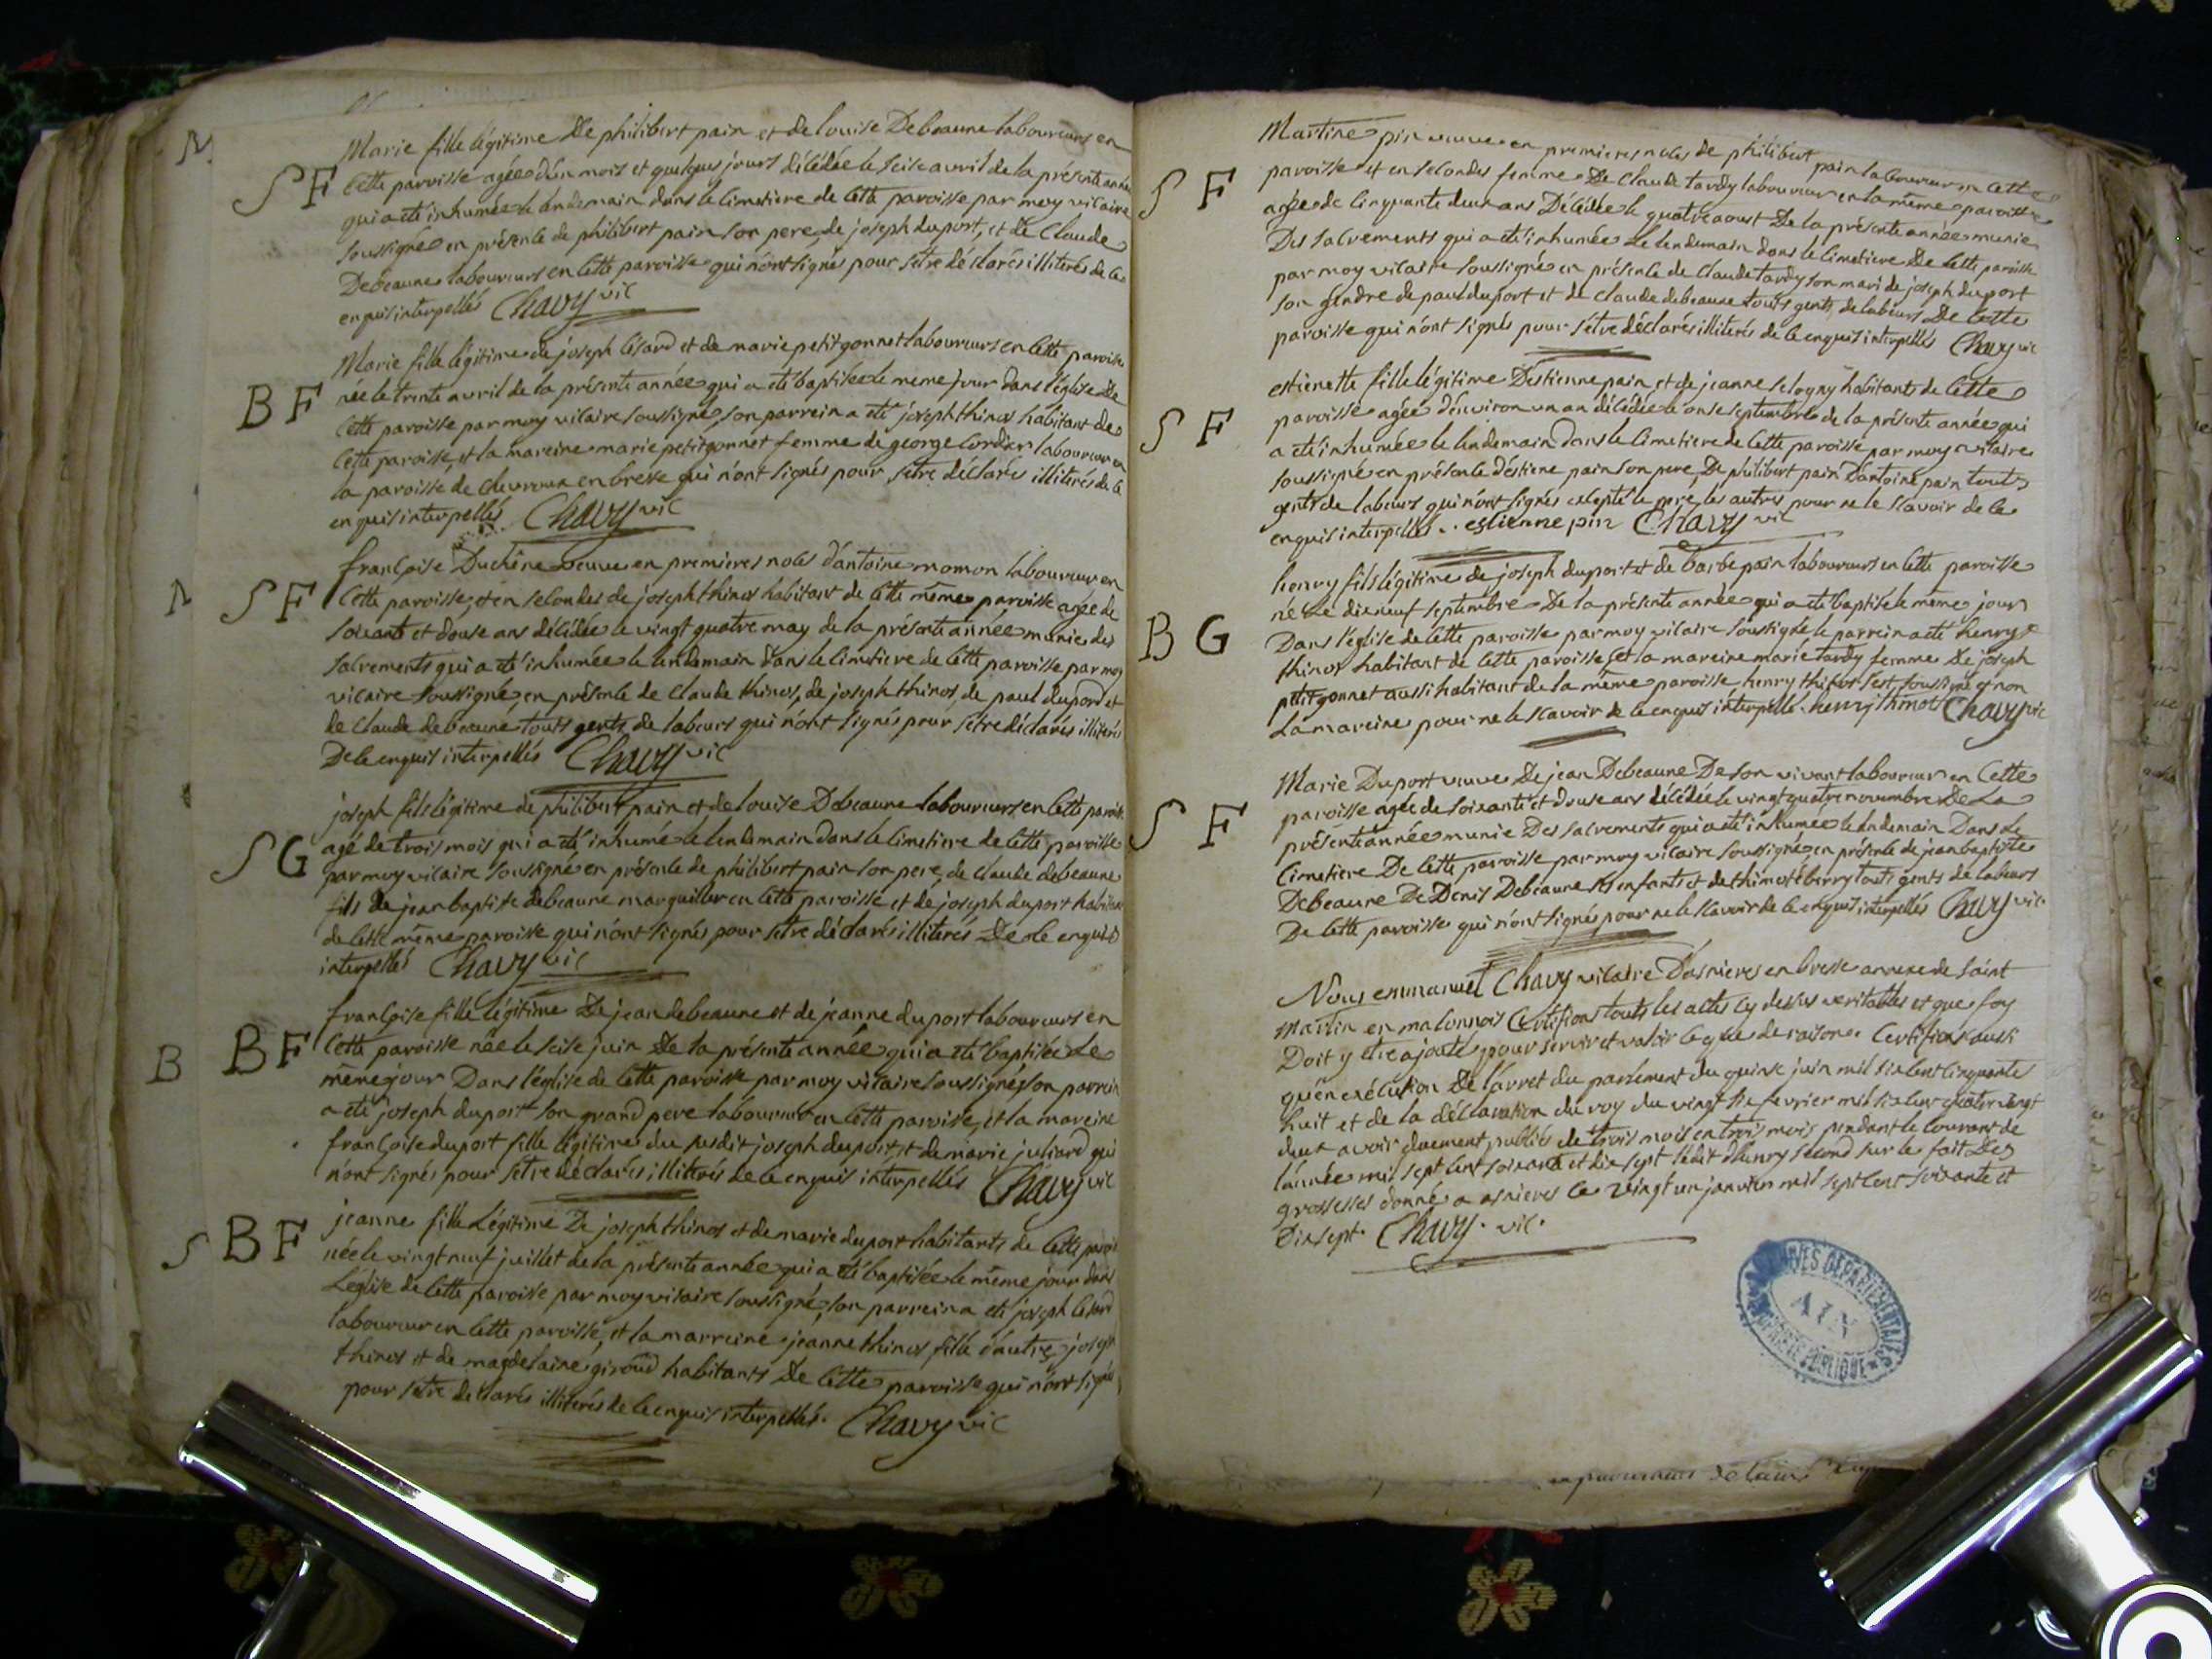 M
SF
Marie fille légitime De philibert pain et de louise Debeaune laboureurs en
cette paroisse agée d'un mois et quelques jours décédée le seise avril de la présente année
qui a eté inhumée le lendemain dans le cimetiere de cette paroisse par moy vicaire
soussigné en présence de philibert pain son pere, de joseph duport, et de Claude
Debeaune laboureurs en cette paroisse qui n'ont signés pour s'etre déclarés illiterés de ce
enquis interpellés Chavy vic
BF
Marie fille légitime de joseph lésard et de marie petitgonnet laboureurs en cette paroisse
née le trente avril de la présente année qui a eté baptisée le meme jour dans l'église De
cette paroisse par moy vicaire soussigné, son parrein a eté joseph thinos habitant de
cette paroisse, et la mareine marie petitgonnet femme de george Cordier laboureur en
la paroisse de chevroux en bresse qui n'ont signés pour s'etre déclarés illiterés de ce
enquis interpellés Chavy vic
SF
françoise Duchêne veuve en premieres noces d'antoine momon laboureur en
cette paroisse, et en secondes de joseph thinos habitant de cette même paroisse agée de
soixante et douse ans décédée le vingt quatre may de la présente année munie des
sacrements qui a eté inhumée le lendemain dans le cimetiere de cette paroisse par moy
vicaire soussigné, en présence de claude thinos, de joseph thinos, de paul duport et
de claude debeaune touts gents de labeurs qui n'ont signés pour s'etre déclarés illiterés
De ce enquis interpellés Chavy vic
SG
joseph fils légitime de philibert pain et de louise Debeaune laboureurs en cette paroisse
agé de trois mois qui a eté inhumé le lendemain dans le cimetiere de cette paroisse
par moy vicaire soussigné en présence de philibert pain son pere, de claude debeaune
fils de jean baptiste debeaune marguiller en cette paroisse et de joseph duport habitant
de cette même paroisse qui n'ont signés pour s'etre déclarés illiterés De ce enquis
interpellés Chavy vic
B BF
françoise fille légitime De jean debeaune et de jeanne duport laboureurs en
cette paroisse née le seise juin De la présente année qui a eté baptisée le
même jour Dans l'église de cette paroisse par moy vicaire soussigné, son parrein
a eté joseph duport son grand pere laboureur en cette paroisse, et la mareine
françoise duport fille légitime du susdit joseph duport et de marie juliard qui
n'ont signés pour s'etre déclarés illiterés de ce enquis interpellés Chavy vic
S BF
jeanne fille Légitime De joseph thinos et de marie duport habitants de cette paroisse
née le vingt neuf juillet de la présente année qui a eté baptisée le même jour dans
L'église de cette paroisse par moy vicaire soussigné, son parrein a eté joseph lésard
laboureur en cette paroisse, et la marreine jeanne thinos fille d'autre joseph
thinos et de magdelaine giroud habitants De cette paroisse qui n'ont signés
pour s'etre déclarés illiterés de ce enquis interpellés. Chavy vic
SF
Martine pin veuve en premieres noces de philibert pain laboureur en cette
paroisse et en secondes femme De claude tardy laboureur en la même paroisse
agée de cinquante deux ans Décédée le quatre aoust De la présente année munie
Des sacrements qui a eté inhumée le lendemain dans le cimetiere De cette paroisse
par moy vicaire soussigné en présence de claude tardy son mari de joseph duport
son gendre de paul duport et de claude debeaune touts gents de labeurs De cette
paroisse qui n'ont signés pour s'être déclarés illiterés de ce enquis interpellés Chavy vic
SF
estienette fille légitime D'estienne pain et de jeanne selogny habitants de cette
paroisse agée d'environ un an décédée le onse septembre de la présente année qui
a eté inhumée le lendemain dans le cimetiere de cette paroisse par moy vicaire
soussigné en présence d'estiene pain son pere, De philibert pain D'antoine pain touts
gents de labeurs qui n'ont signés excepté le pere, les autres pour ne le scavoir de ce
enquis interpellés. estienne pin Chavy vic
BG
henry fils légitime de joseph duport et de barbe pain laboureurs en cette paroisse
né le dix neuf septembre De la présente année qui a eté baptisé le même jour
Dans l'église de cette paroisse par moy vicaire soussigné le parrein a eté henry
thinos habitant de cette paroisse et la mareine marie tardy femme De joseph
petitgonnet aussi habitant de la même paroisse henry thinos s'est soussigné et non
La mareine pour ne le scavoir de ce enquis interpellé. henry thinos Chavy vic
SF
Marie Duport veuve De jean Debeaune De son vivant laboureur en cette
paroisse agée de soixante et douse ans décédée le vingt quatre novembre De La
présente année munie Des sacrements qui a eté inhumée le lendemain Dans le
cimetiere De cette paroisse par moy vicaire soussigné, en présence de jean baptiste
Debeaune De Denis Debeaune ses enfants et de thimoté berry touts gents de labeurs
De cette paroisse qui n'ont signés pour ne le scavoir de ce enquis interpellés Chavy vic.
Nous emmanuel Chavy vicaire D'asnieres en bresse annexe de saint
Martin en maconnois Certifions touts les actes cy dessus veritables et que foy
Doit y etre ajoutée pour servir et valoir ce que de raison. Certifions aussi
qu'en exécution De l'arret du parlement du quinse juin mil six cent cinquante
huit et de la déclaration du roy du vingt six fevrier mil six cent quatre vingt
deux avoir duement publiés de trois mois en trois mois pendant le courant de
l'année mil sept cent soixante et dix sept l'édit d'henry second sur le fait Des
grossesses donné a asnieres ce vingt un janvier mil sept cent soixante et
Dix sept. Chavy. vic.
ARCHIVES DEPARTEMENTALES
AIN
PROPRIETE PUBLIQUE